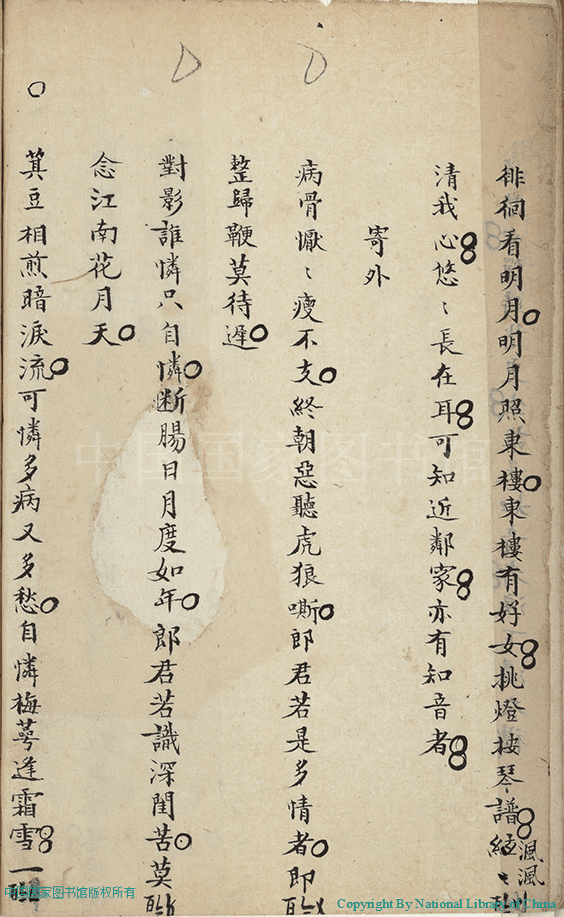 徘徊看明月明月照東樓東樓有好女挑燈按琴譜絃〻
渢渢
清我心悠〻長在耳可知近鄰家亦有知音者
寄外
病骨懨〻瘦不支終朝惡聽虎狼嘶郎君若是多情者即
整歸鞭莫待遲
對影誰憐只自憐断腸日月度如年郎君若識深閨苦莫
念江南花月天
萁豆相煎暗淚流可憐多病又多愁自憐梅萼逢霜雪一
中国国家图书馆
中国国家图书馆版权所有
Copyright By National Library of China